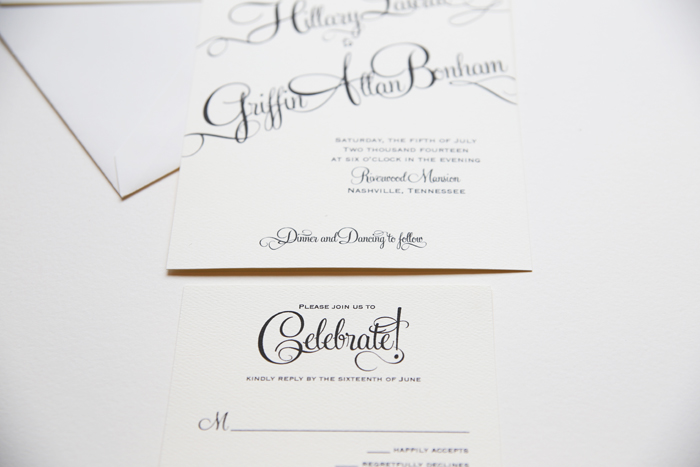 Hillary
&
Griffin Allan Bonham
Saturday, the fifth of July
Two thousand fourteen
at six o'clock in the evening
Riverwood Mansion
Nashville, Tennessee
Dinner and Dancing to follow
Please join us to
Celebrate!
kindly reply by the sixteenth of June
M
happily accepts
regretfully declines